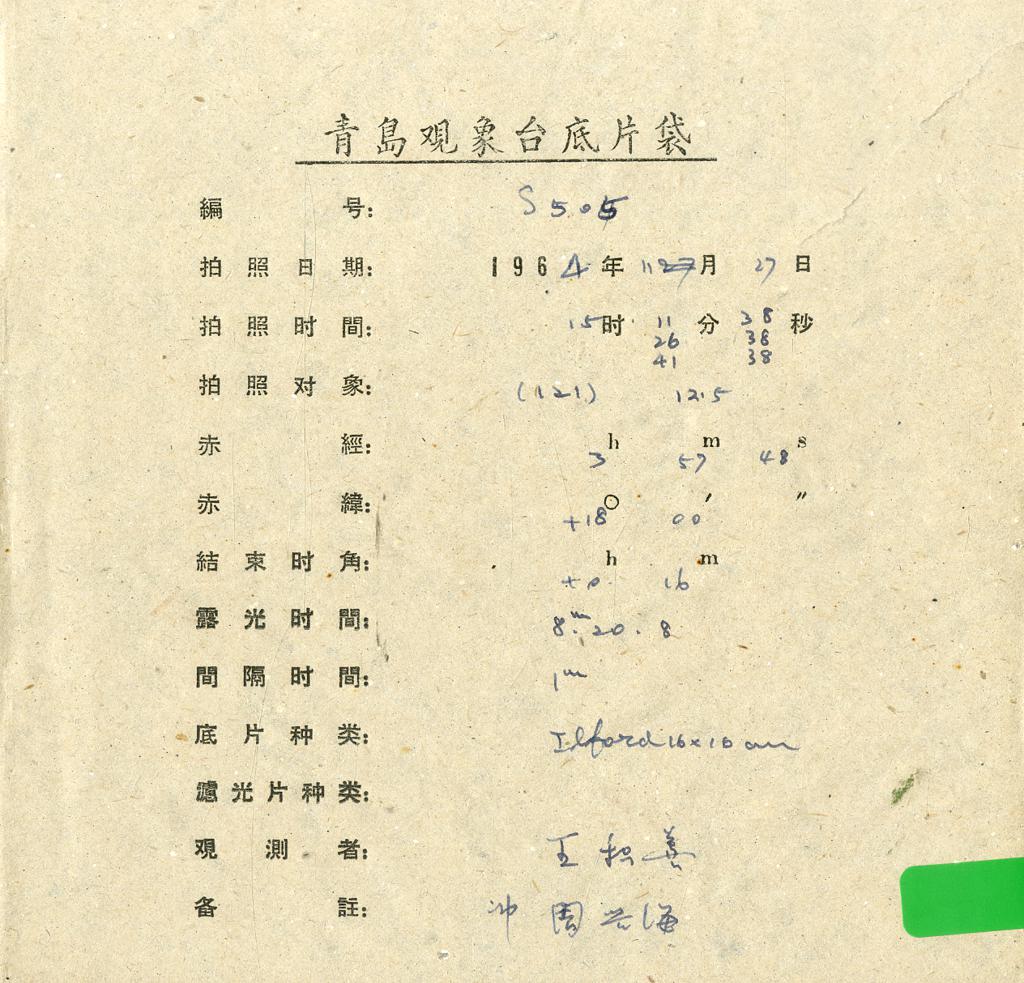 青島观象台底片袋
編号: S505
拍照日期: 1964年 11月 27日
拍照时間: 15时 11分 38秒
26 38
41 38
拍照对象: (121) 12.5
赤經: 3h 57m 48s
赤緯: +18° 00′ ″
結束时角: +0h 16m
露光时間: 8m. 20. 8
間隔时間: 1m
底片种类: Ilford 16×16 cm
濾光片种类:
观測者: 王 善
备註: 冲 周兴海